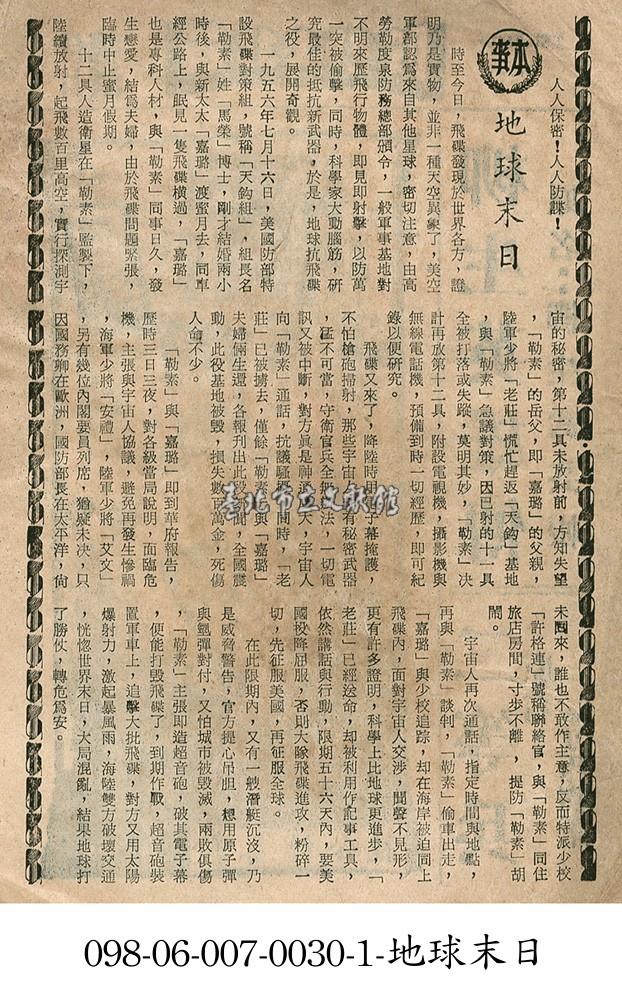 人人保密!人人防諜!
本事
地球末日
時至今日,飛碟發現於世界各方,證
明乃是實物,並非一種天空異象了,美空
軍部認爲來自其他星球,密切注意,由高
勞勒度泉防務總部頒令,一般軍事基地對
不明來歷飛行物體,即見即射擊,以防萬
一突被偷擊,同時,科學家大動腦筋,研
究最佳的抵抗新武器,於是,地球抗飛碟
之役,展開奇觀。
一九五六年七月十六日,美國防部特
設飛碟對策組,號稱「天鈎組」,組長名
「勒素」姓「馬榮」博士,剛才結婚兩小
時後,與新太太「嘉璐」渡蜜月去,同車
經公路上,眼見一隻飛碟橫過,「嘉璐」
也是專科人材,與「勒素」同事日久,發
生戀愛,結爲夫婦,由於飛碟問題緊張,
臨時中止蜜月假期。
十二具人造衛星在「勒素」監製下,
陸續放射,起飛數百里高空,實行探測宇
宙的秘密,第十二具未放射前,方知失望
,「勒素」的岳父,即「嘉璐」的父親,
陸軍少將「老莊」慌忙趕返「天鈎」基地
,與「勒素」急議對策,因已射的十一具
全被打落或失蹤,莫明其妙,「勒素」決
計再放第十二具,附設電視機,攝影機與
無線電話機,預備到時一切經歷,即可紀
錄以便研究。
飛碟又來了,降陸時用電子幕掩護,
不怕槍砲掃射,那些宇宙人有秘密武器
,猛不可當,守衛官兵全無辦法,一切電
訊又被中斷,對方眞是神通廣天,宇宙人
向「勒素」通話,抗議騷擾空間時,「老
莊」已被擄去,僅餘「勒素」與「嘉璐」
夫婦倆生還,各報刊出此段新聞,全國震
動,此役基地被毀,損失數千萬金,死傷
人命不少。
「勒素」與「嘉璐」即到華府報告,
歷時三日三夜,對各級當局說明,面臨危
機,主張與宇宙人協議,避免再發生慘禍
,海軍少將「安禮」,陸軍少將「艾文」
,另有幾位內閣要員列席,猶疑未決,只
因國務卿在歐洲,國防部長在太平洋,尙
未囘來,誰也不敢作主意,反而特派少校
「許格連」號稱聯絡官,與「勒素」同住
旅店房間,寸步不離,提防「勒素」胡
鬧。
宇宙人再次通話,指定時間與地點,
再與「勒素」談判,「勒素」偷車出走,
「嘉璐」與少校追踪,却在海岸被迫同上
飛碟內,面對宇宙人交涉,聞聲不見形,
更有許多證明,科學上比地球更進步,「
老莊」已經送命,却被利用作記事工具,
依然講話與行動,限期五十六天內,要美
國投降屈服,否則大隊飛碟進攻,粉碎一
切,先征服美國,再征服全球。
在此限期內,又有一艘潛艇沉沒,乃
是威脅警告,官方提心吊胆,想用原子彈
與氫彈對付,又怕城市被毀滅,兩敗俱傷
,「勒素」主張即造超音砲,破其電子幕
,便能打毀飛碟了,到期作戰,超音砲裝
置軍車上,追擊大批飛碟,對方又用太陽
爆射力,激起暴風雨,海陸雙方破壞交通
,恍惚世界末日,大局混亂,結果地球打
了勝仗,轉危爲安。
臺北市立文獻館
098-06-007-0030-1-地球末日